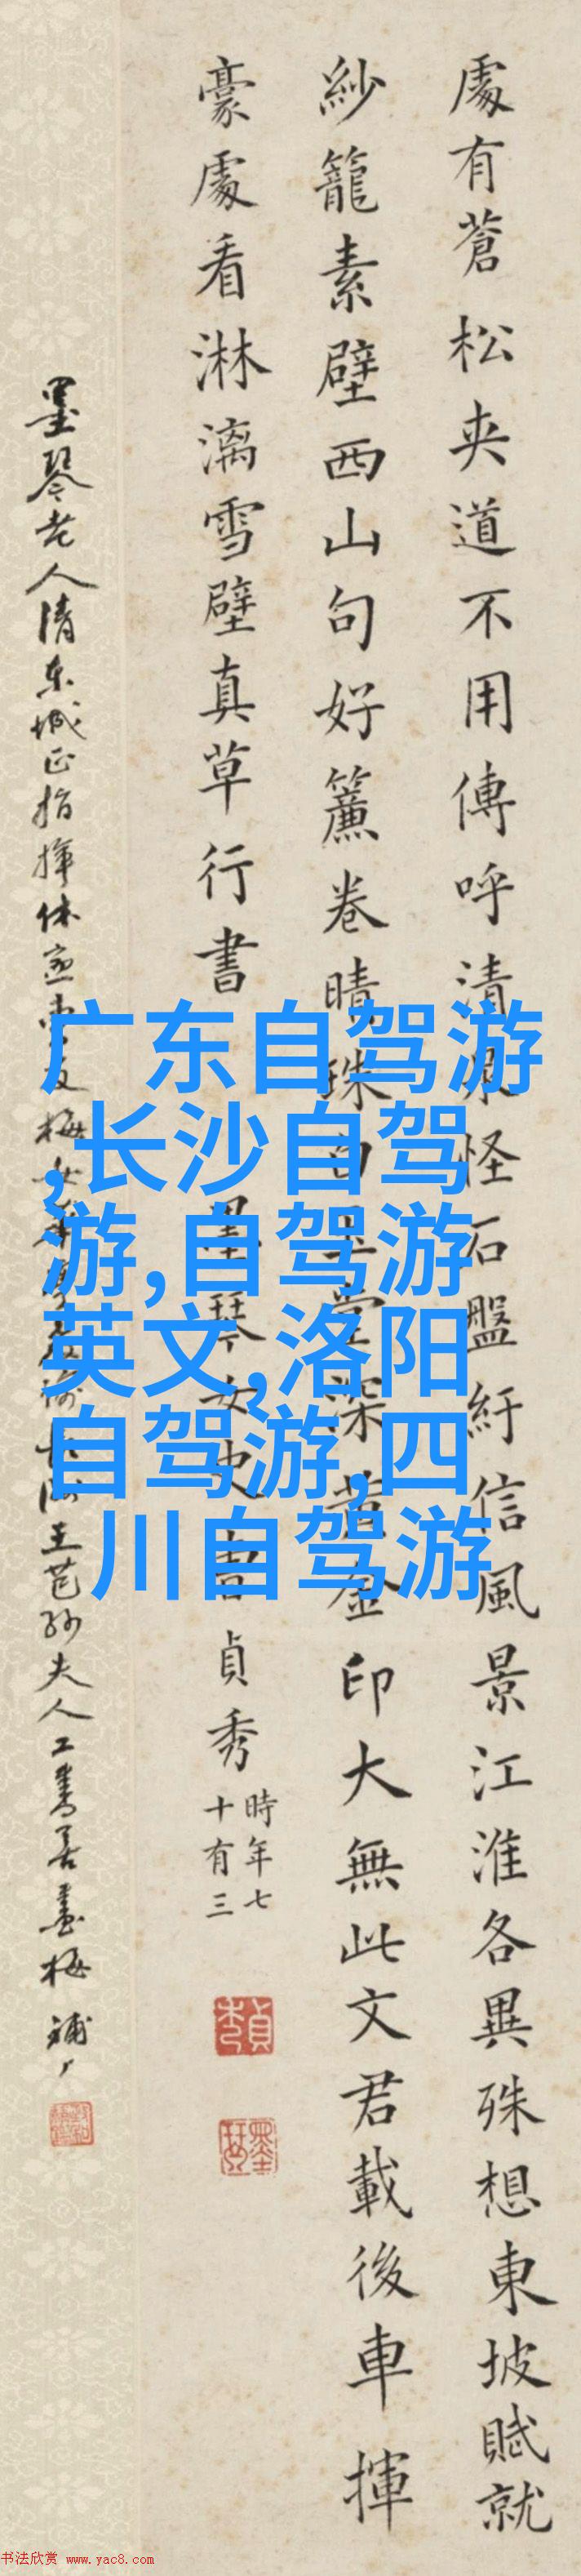 處有蒼松夾道不用傳呼清泉怪石盤紆信風景江淮各異殊想東坡賦就
紗籠素壁西山句好簾卷晴珠白玉堂深黃金印大無此文君載後車揮
豪處看淋漓雪壁真草行書
墨琴女史曹貞秀
時年七
十有三
墨琴老人清東城正指揮
王芑孫夫人工書善畫梅
广东自驾游
,长沙自驾
游,自驾游
英文,洛阳
自驾游,四
川自驾游
书法欣赏 www.yac8.com